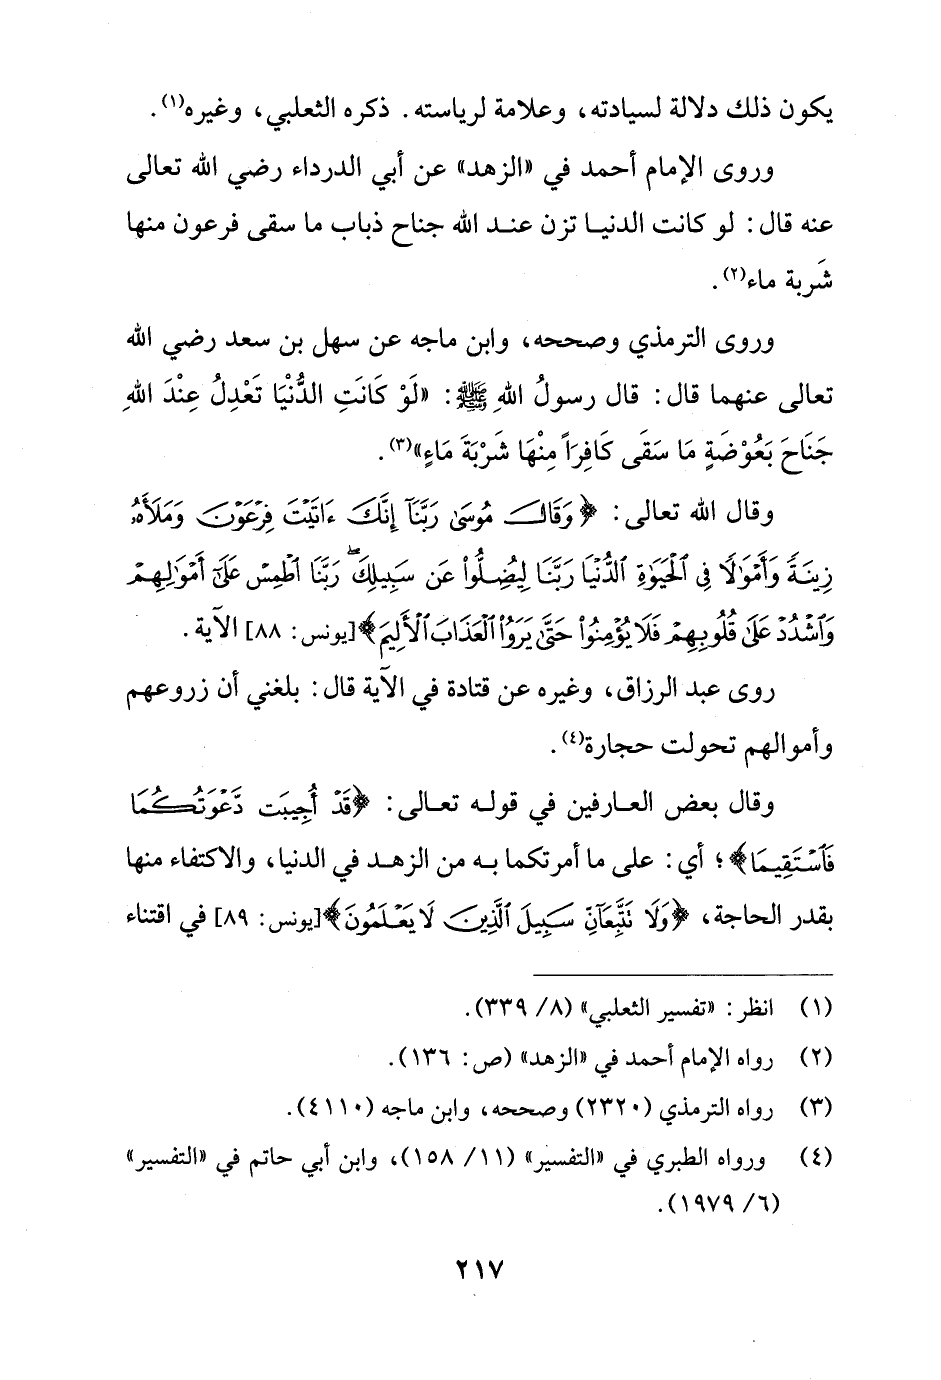 يكون ذلك دلالة لسيادته، وعلامة لرياسته. ذكره الثعلبي، وغيره(١).
وروى الإمام أحمد في «الزهد» عن أبي الدرداء رضي الله تعالى
عنه قال: لو كانت الدنيا تزن عند الله جناح ذباب ما سقى فرعون منها
شَربة ماء(٢).
وروى الترمذي وصححه، وابن ماجه عن سهل بن سعد رضي الله
تعالى عنهما قال: قال رسولُ اللهِ ﷺ: «لَوْ كَانَتِ الدُّنْيَا تَعْدِلُ عِنْدَ اللهِ
جَنَاحَ بَعُوْضَةٍ مَا سَقَى كَافِرَاً مِنْهَا شَرْبَةَ مَاءٍ»(٣).
وقال الله تعالى: ﴿وَقَالَ مُوسَىٰ رَبَّنَآ إِنَّكَ ءَاتَيْتَ فِرْعَوْنَ وَمَلَأَهُۥ
زِينَةً وَأَمْوَٰلًا فِى ٱلْحَيَوٰةِ ٱلدُّنْيَا رَبَّنَا لِيُضِلُّوا۟ عَن سَبِيلِكَ ۖ رَبَّنَا ٱطْمِسْ عَلَىٰٓ أَمْوَٰلِهِمْ
وَٱشْدُدْ عَلَىٰ قُلُوبِهِمْ فَلَا يُؤْمِنُوا۟ حَتَّىٰ يَرَوُا۟ ٱلْعَذَابَ ٱلْأَلِيمَ﴾[يونس: ٨٨] الآية.
روى عبد الرزاق، وغيره عن قتادة في الآية قال: بلغني أن زروعهم
وأموالهم تحولت حجارة(٤).
وقال بعض العارفين في قوله تعالى: ﴿قَدْ أُجِيبَت دَّعْوَتُكُمَا
فَٱسْتَقِيمَا﴾؛ أي: على ما أمرتكما به من الزهد في الدنيا، والاكتفاء منها
بقدر الحاجة، ﴿وَلَا تَتَّبِعَآنِّ سَبِيلَ ٱلَّذِينَ لَا يَعْلَمُونَ﴾[يونس: ٨٩] في اقتناء
(١) انظر: «تفسير الثعلبي» (٨/ ٣٣٩).
(٢) رواه الإمام أحمد في «الزهد» (ص: ١٣٦).
(٣) رواه الترمذي (٢٣٢٠) وصححه، وابن ماجه (٤١١٠).
(٤) ورواه الطبري في «التفسير» (١١/ ١٥٨)، وابن أبي حاتم في «التفسير»
(٦/ ١٩٧٩).
٢١٧